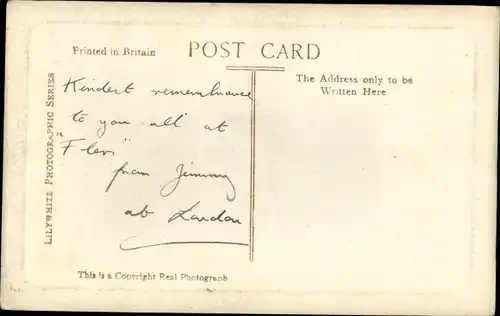 Printed in Britain
POST CARD
The Address only to be
Written Here
LILYWHITE PHOTOGRAPHIC SERIES
Kindest remembrance
to you all at
"Flers"
from Jimmy
at London
This is a Copyright Real Photograph